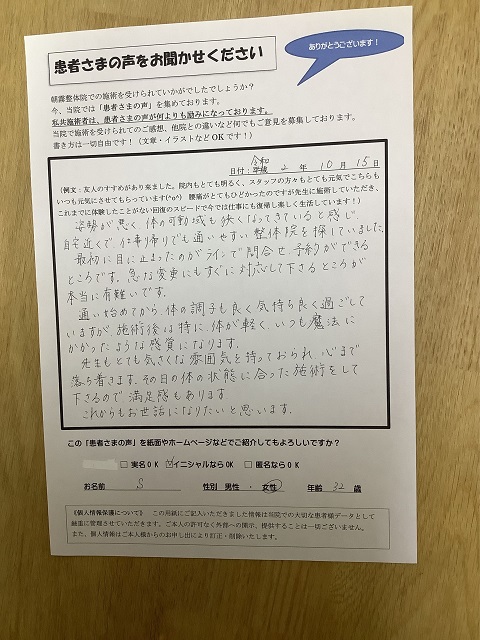 患者さまの声をお聞かせください
ありがとうございます！
朝霧整体院での施術を受けられていかがでしたでしょうか？
今、当院では「患者さまの声」を集めております。
私共施術者は、患者さまの声が何よりも励みになっております。
当院で施術を受けられてのご感想、他院との違いなど何でもご意見を募集しております。
書き方は一切自由です！（文章・イラストなどOKです！）
日付：平成 令和 2 年 10 月 15 日
（例文：友人のすすめがあり来ました。院内もとても明るく、スタッフの方々もとても元気でこちらも
いつも元気にさせてもらっています(^o^) 腰痛がとてもひどかったのですが先生に施術していただき、
これまでに体験したことがない回復のスピードで今では仕事にも復帰し楽しく生活しています！）
姿勢が悪く体の可動域も狭くなってきていると感じ、
自宅近くで、仕事帰りでも通いやすい整体院を探していました。
最初に目に止まったのがラインで問合せ、予約ができる
ところです。急な変更にもすぐに対応して下さるところが
本当に有難いです。
通い始めてから、体の調子も良く気持ち良く過ごして
いますが、施術後は特に、体が軽く、いつも魔法に
かかったような感覚になります。
先生もとても気さくな雰囲気を持っておられ、心まで
落ち着きます。その日の体の状態に合った施術をして
下さるので満足感もあります
これからもお世話になりたいと思います。
この「患者さまの声」を紙面やホームページなどでご紹介してもよろしいですか？
□ 実名OK ☑イニシャルならOK □ 匿名ならOK
お名前 S 性別 男性 ・ 女性 年齢 32 歳
《個人情報保護について》 この用紙にご記入いただきました情報は当院での大切な患者様データとして
厳重に管理させていただきます。ご本人の許可なく外部への開示、提供することは一切ございません。
また、個人情報はご本人様からのお申し出により訂正・削除いたします。